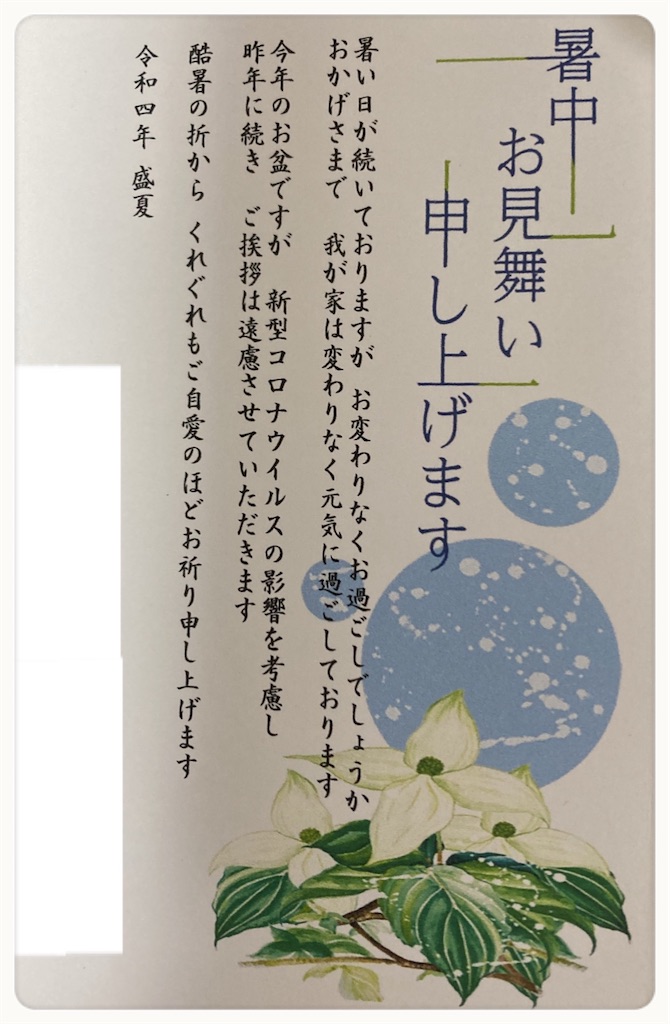 暑中
お見舞い
申し上げます
暑い日が続いておりますが お変わりなくお過ごしでしょうか
おかげさまで 我が家は変わりなく元気に過ごしております
今年のお盆ですが 新型コロナウイルスの影響を考慮し
昨年に続き ご挨拶は遠慮させていただきます
酷暑の折から くれぐれもご自愛のほどお祈り申し上げます
令和四年 盛夏